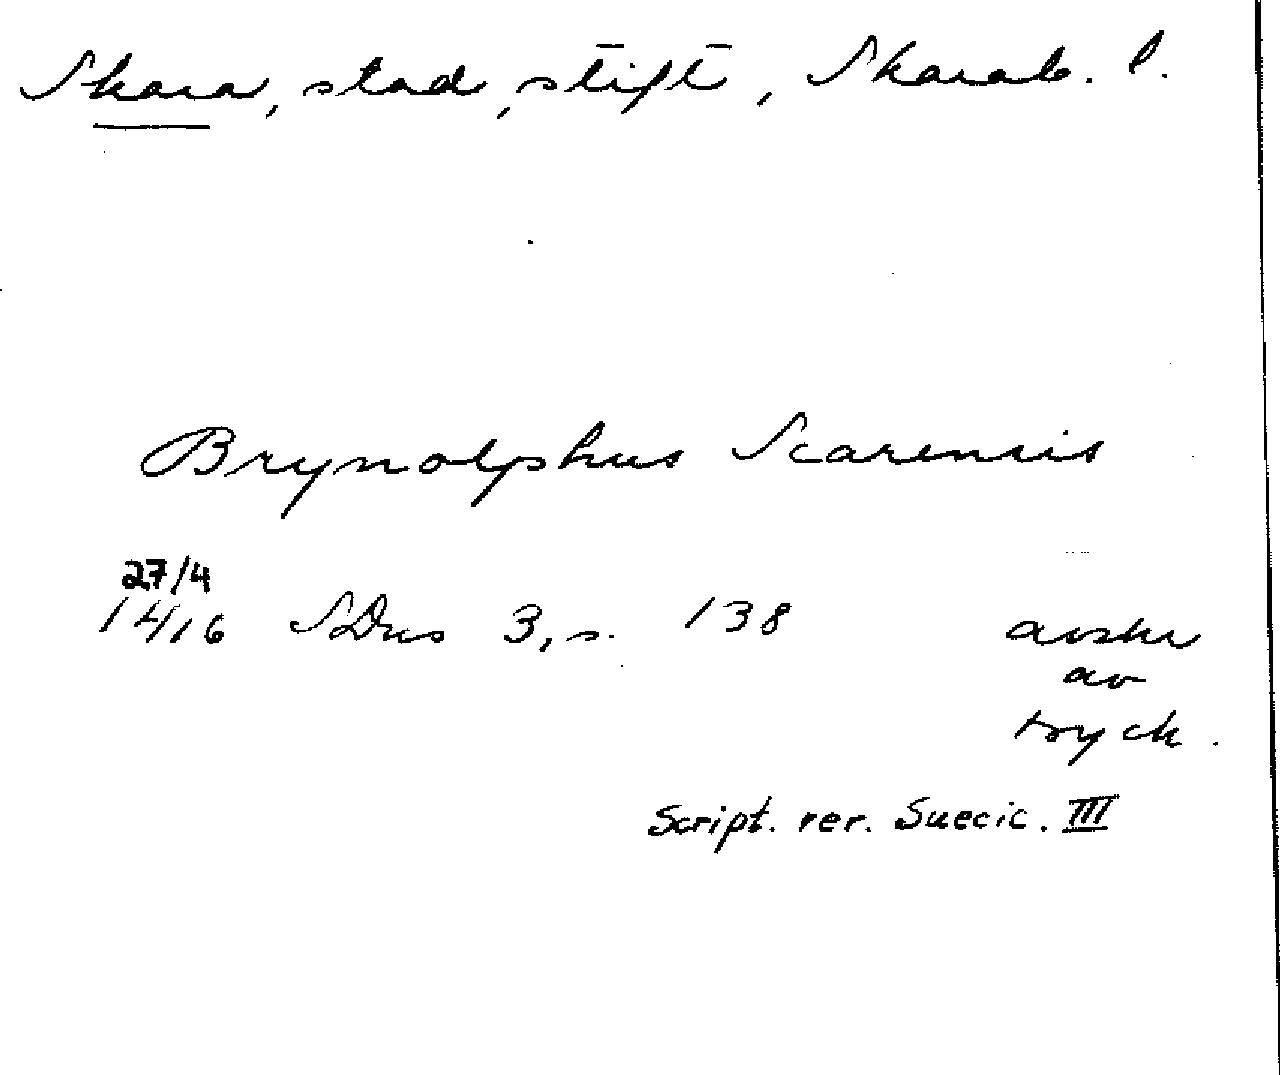 Skara, stad, stift, Skarab. l.
Brynolphus Scarensis
27/4
1416 SDns 3, s. 138 avskr
av
tryck.
Script. rer. Suecic. III